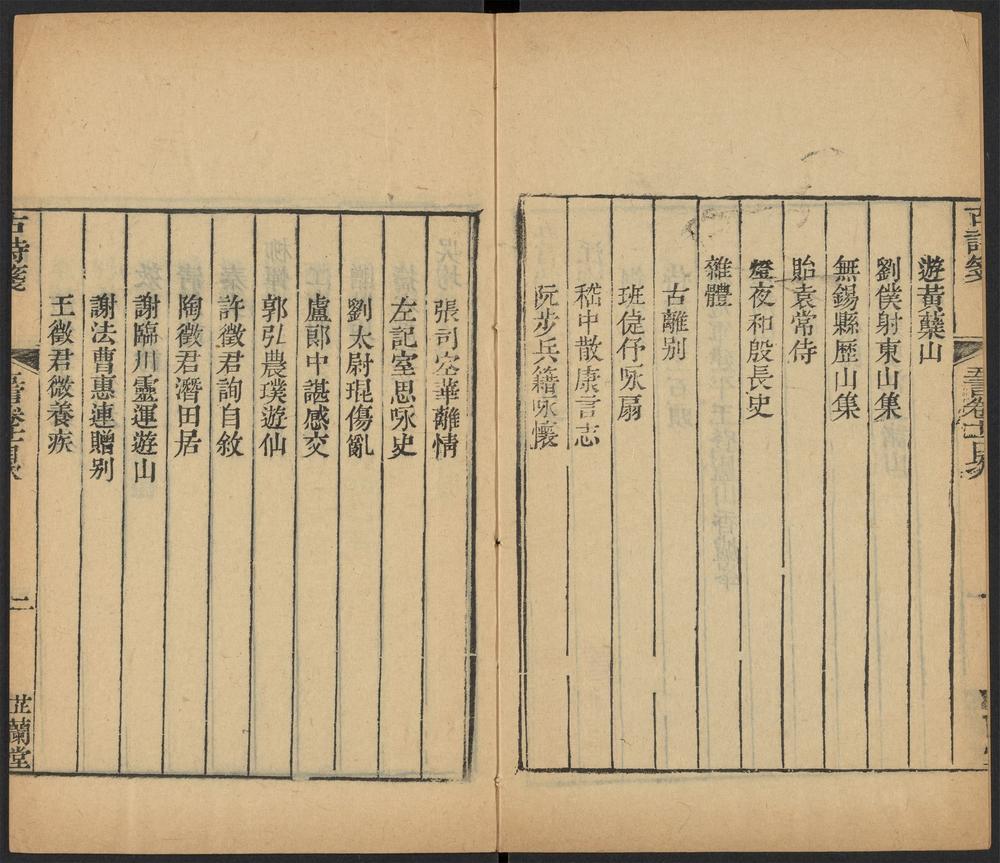 遊黃蘗山
劉僕射東山集
無錫縣歷山集
貽袁常侍
燈夜和殷長史
雜體
古離别
班倢伃咏扇
嵇中散康言志
阮步兵籍咏懷
張司空華離情
左記室思咏史
劉太尉琨傷亂
盧郎中諶感交
郭弘農璞遊仙
許徵君詢自敘
陶徵君潛田居
謝臨川靈運遊山
謝法曹惠連贈别
王徵君微養疾
古詩箋
二
芷蘭堂